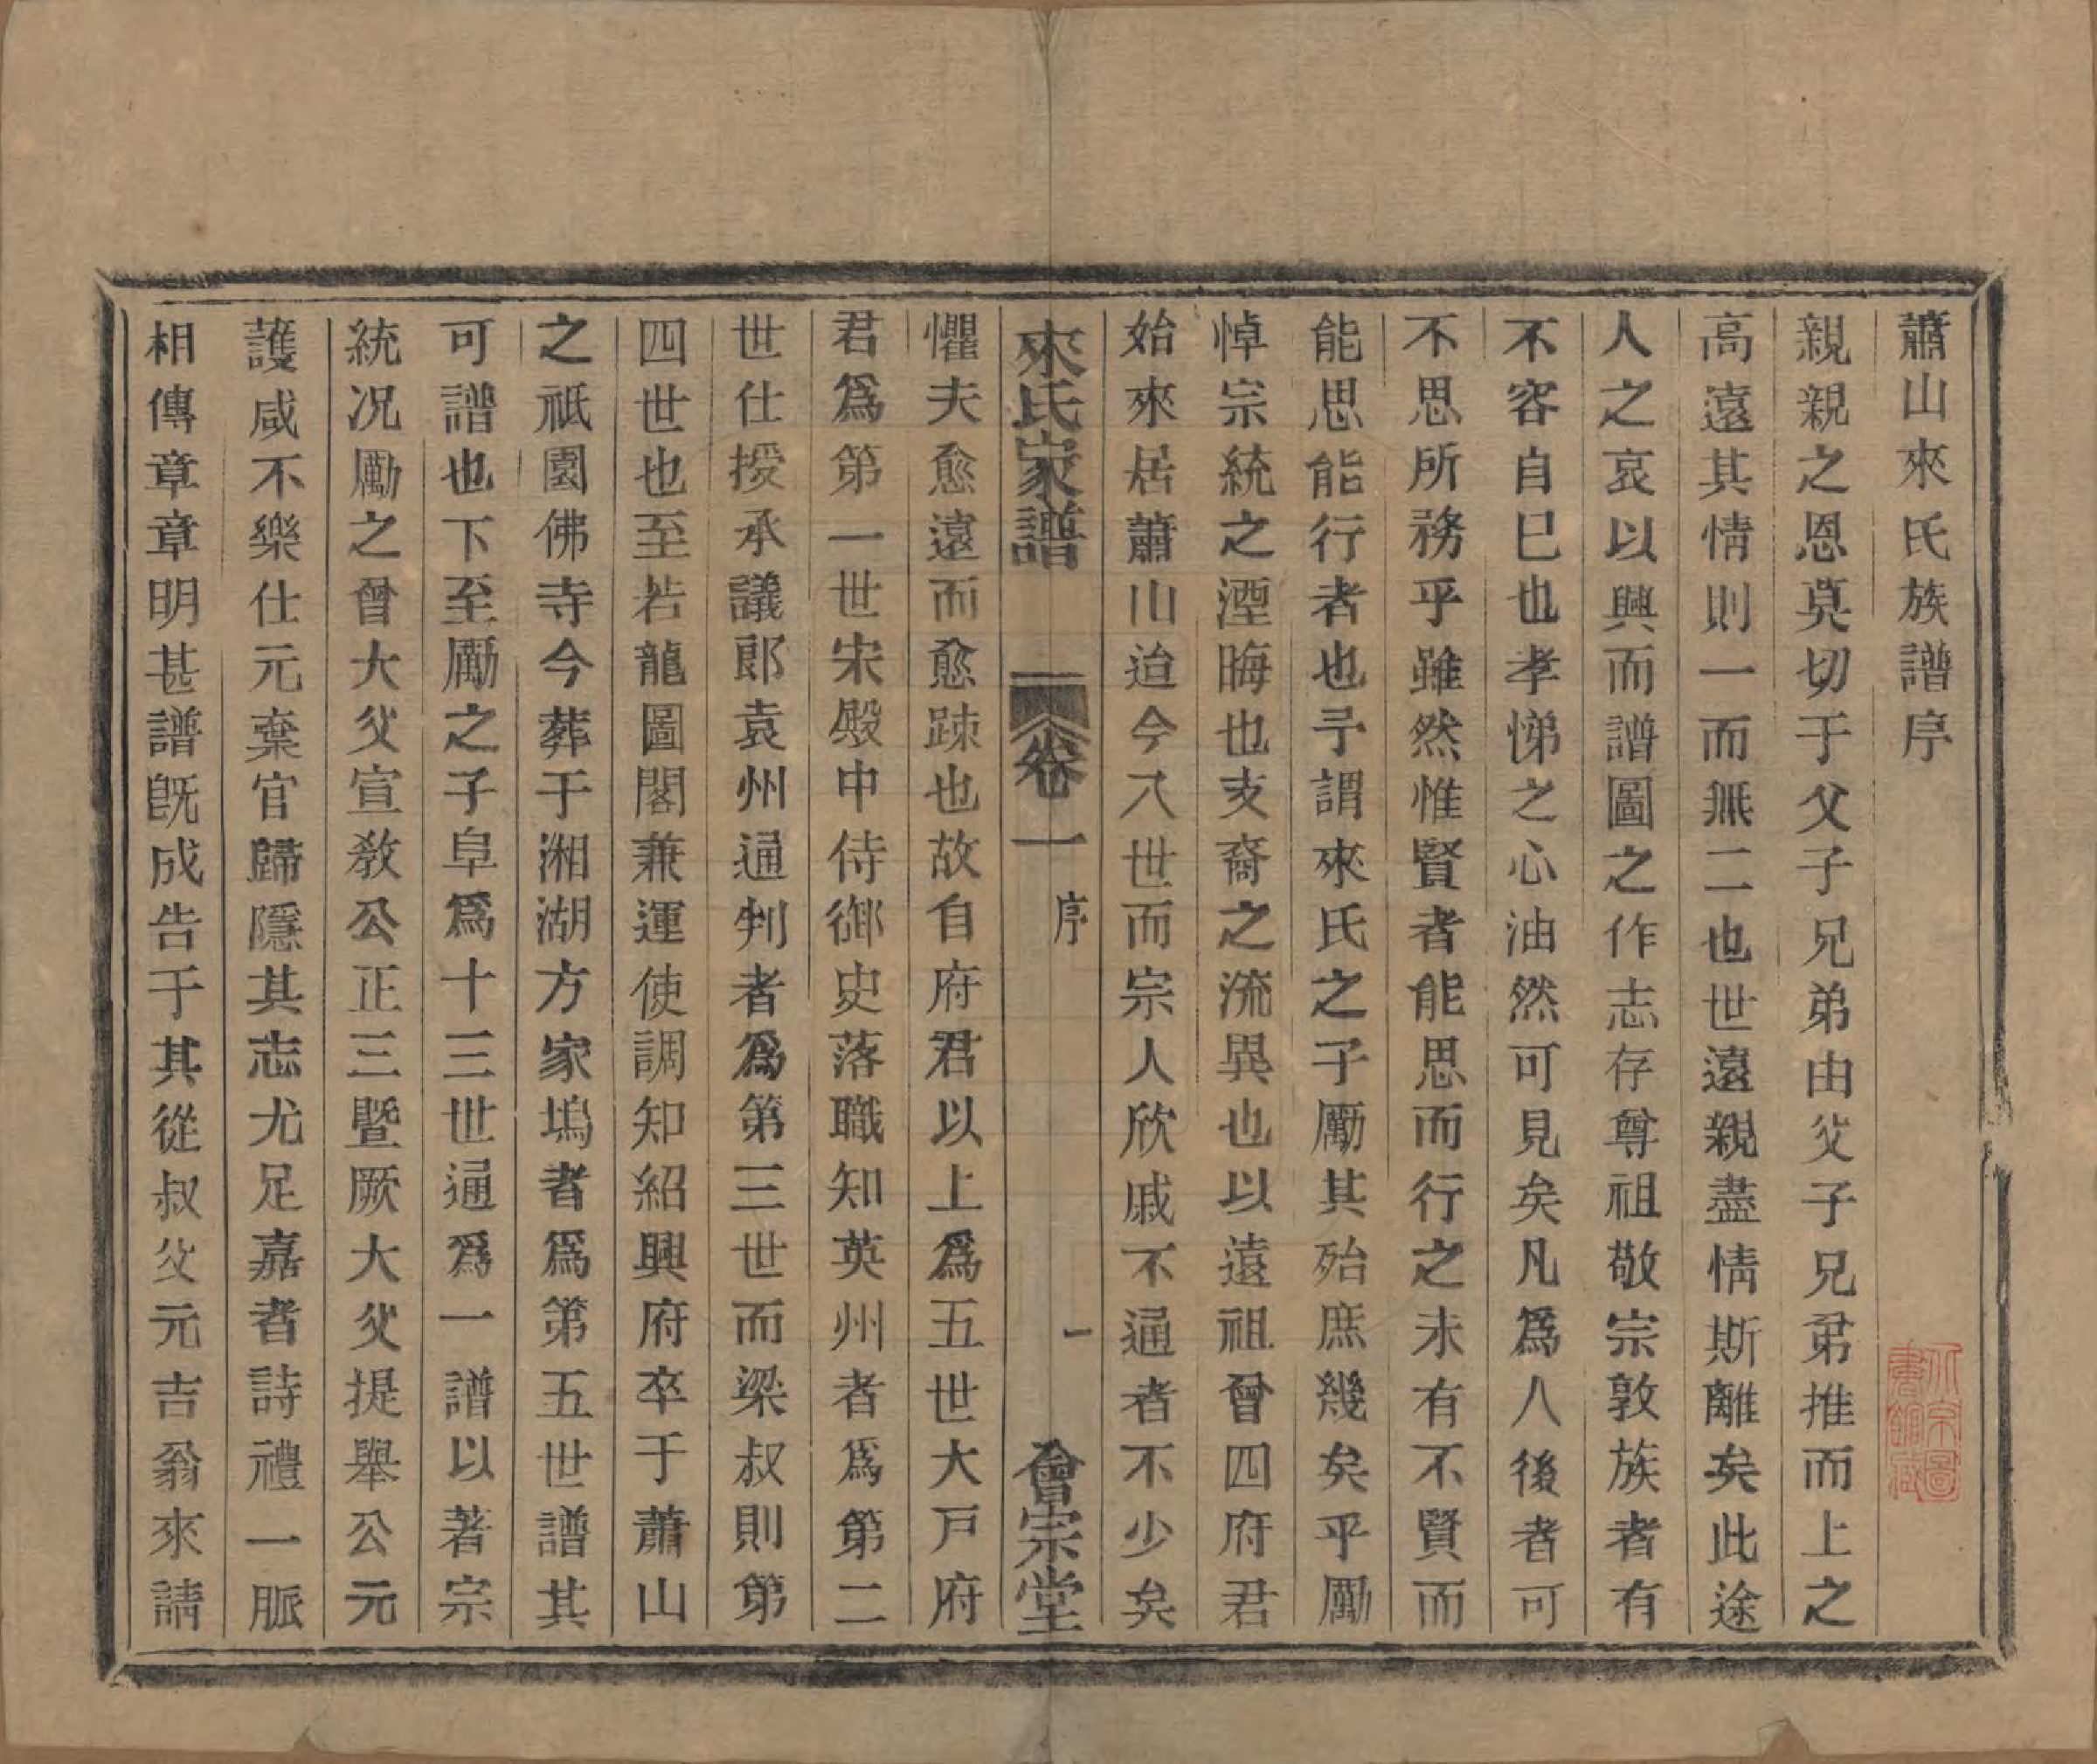 蕭山來氏族譜序
親親之恩莫切于父子兄弟由父子兄弟推而上之
高遠其情則一而無二也世遠親盡情斯離矣此途
人之哀以興而譜圖之作志存尊祖敬宗敦族者有
不容自已也孝悌之心油然可見矣凡爲人後者可
不思所務乎雖然惟賢者能思而行之未有不賢而
能思能行者也予謂來氏之子勵其殆庶幾矣乎勵
悼宗統之湮晦也支裔之流異也以遠祖曾四府君
始來居蕭山迨今八世而宗人欣戚不通者不少矣
來氏家譜 卷一 序 一 會宗堂
懼夫愈遠而愈踈也故自府君以上爲五世大戸府
君爲第一世宋殿中侍御史落職知英州者爲第二
世仕授承議郎袁州通判者爲第三世而梁叔則第
四世也至若龍圖閣兼運使調知紹興府卒于蕭山
之祇園佛寺今葬于湘湖方家塢者爲第五世譜其
可譜也下至勵之子阜爲十三世通爲一譜以著宗
統况勵之曾大父宣教公正三暨厥大父提舉公元
護咸不樂仕元棄官歸隱其志尤足嘉者詩禮一脈
相傳章章明甚譜旣成告于其從叔父元吉翁來請
北京圖書館藏